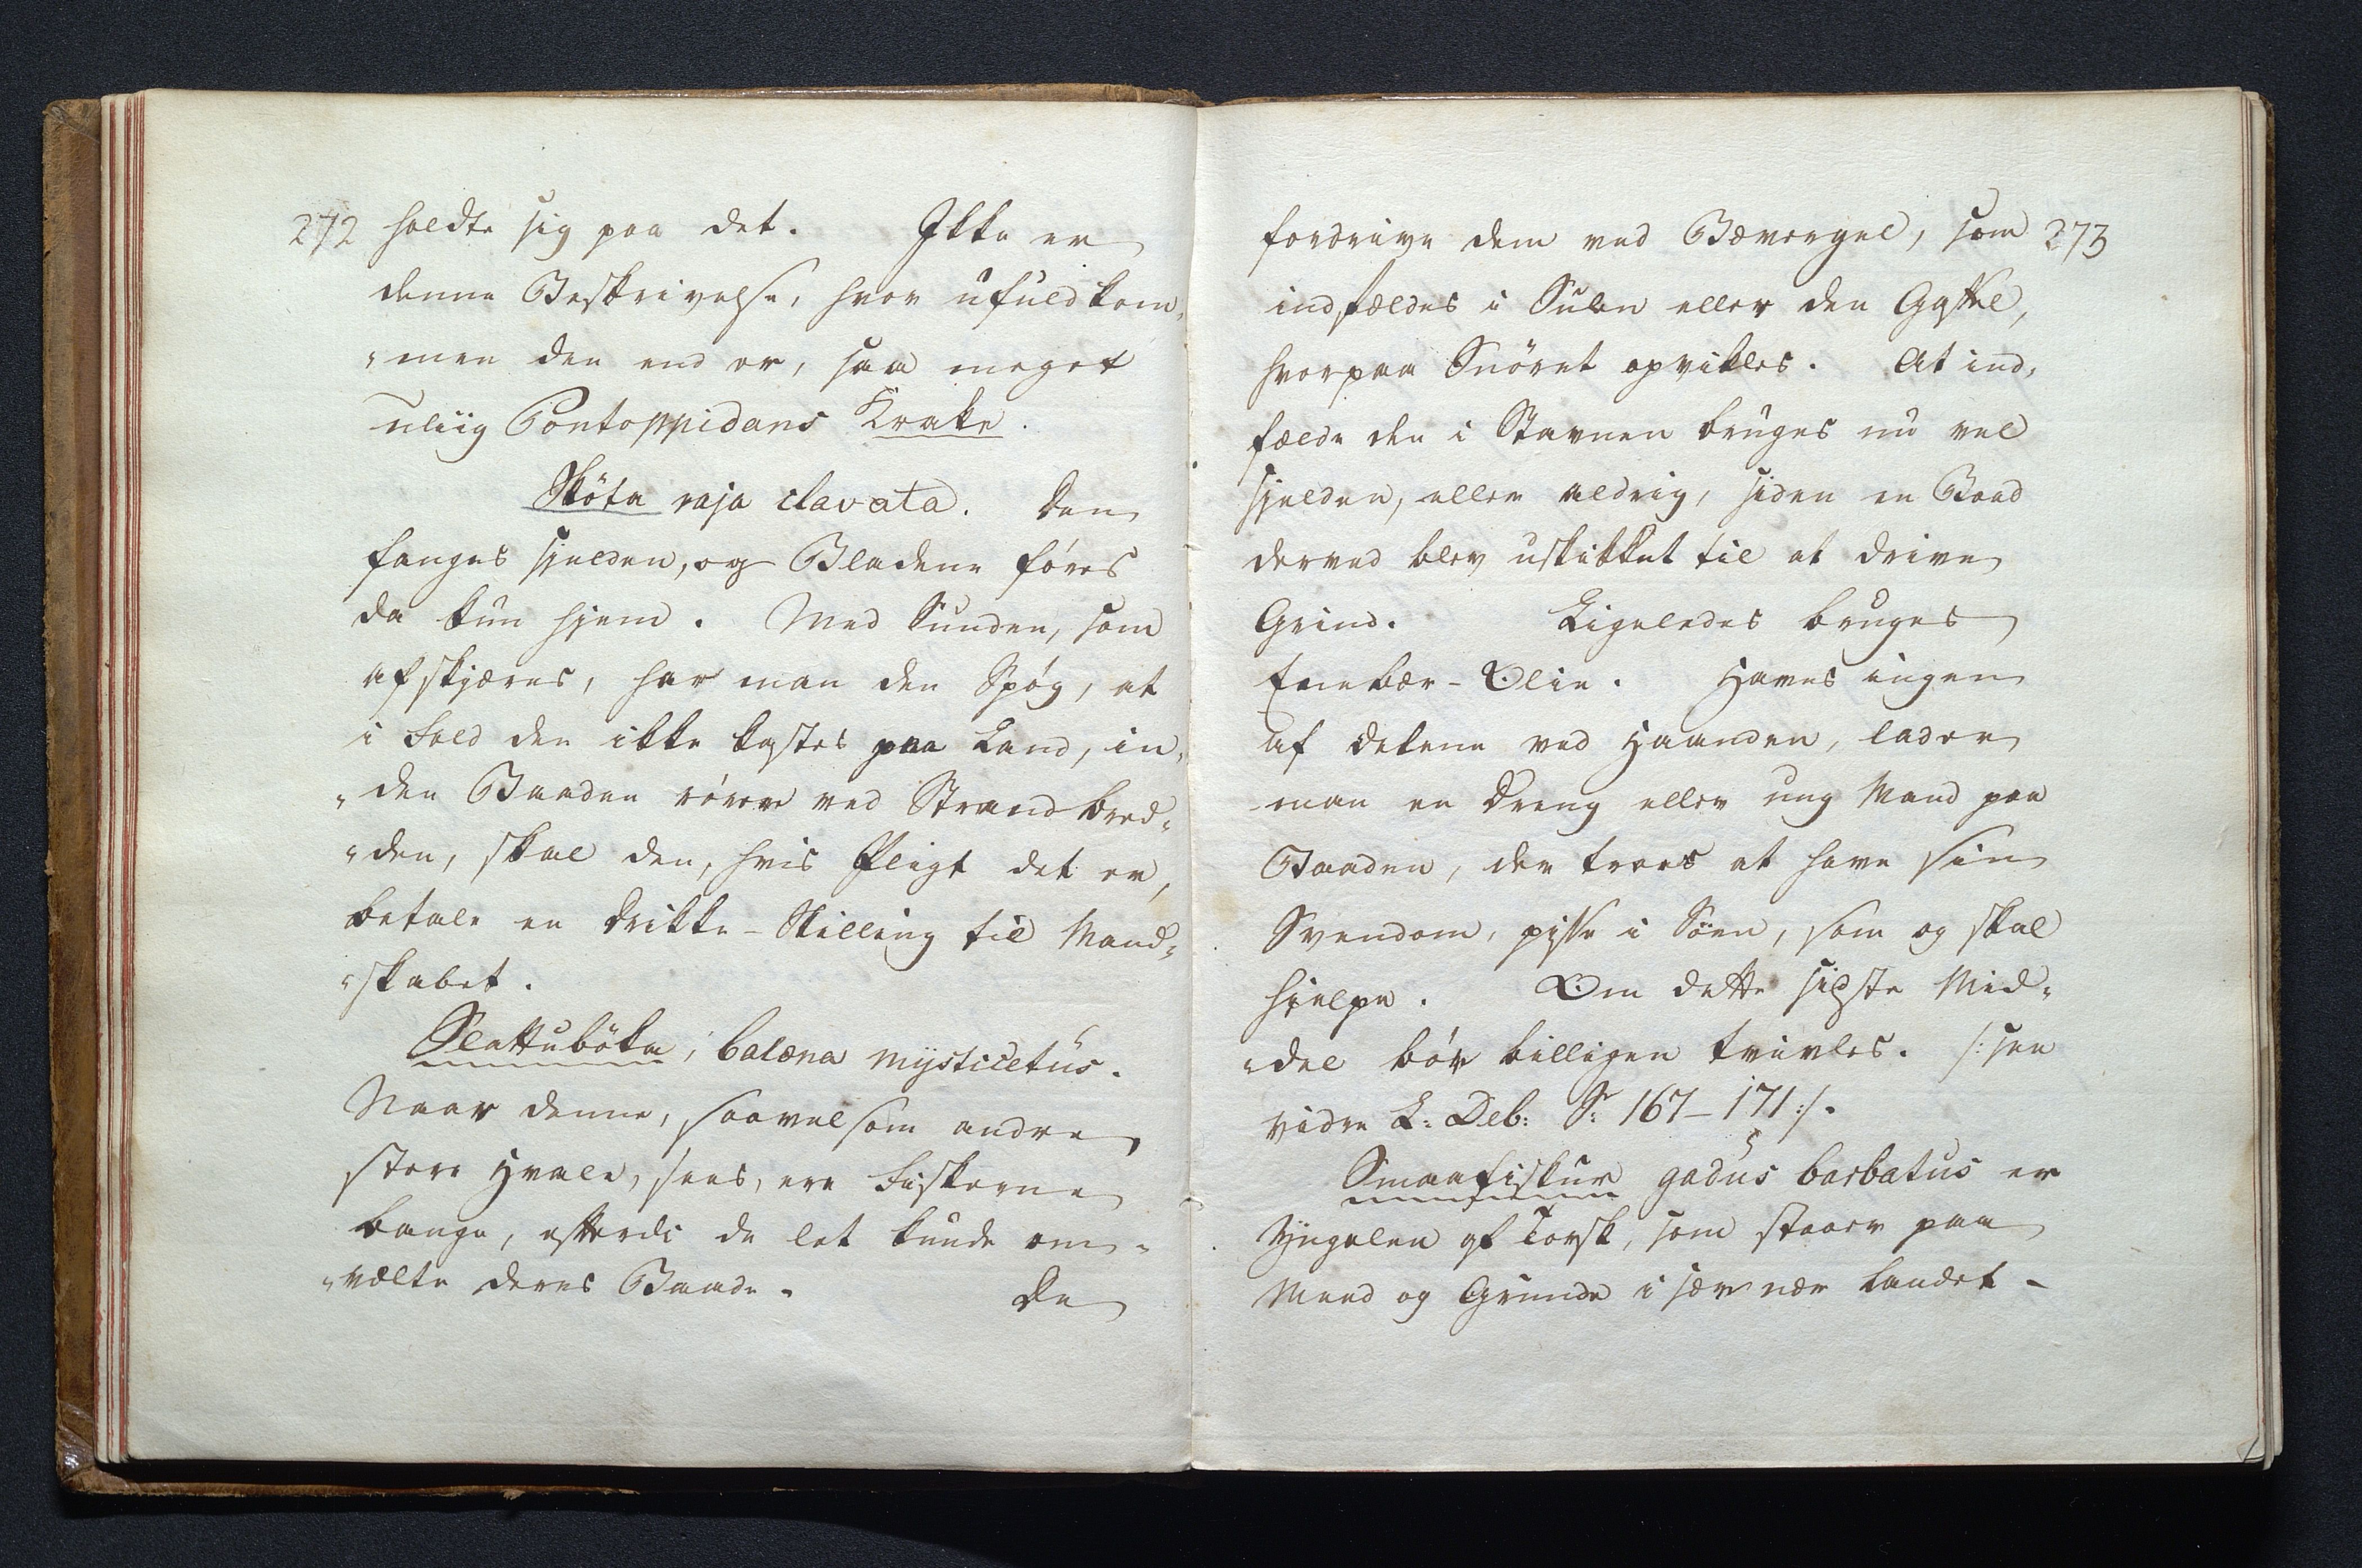 272 holdte sig paa det. Ikke er
denne Beskrivelse, hvor ufuldkom-
-men den end er, saa meget
uliig Pontoppidans Krake.
Sköta raja clavata. Den
fanges sjelden, og Bladene föres
da kun hjem. Med Sunden, som
afskjæres, har man den Spög, at
i Fald den ikke kastes paa Land, in-
-den Baaden rörer ved Strandbred-
-den, skal den, hvis Pligt det er,
betale en Drikke-Skilling til Mand-
-skabet.
Slettuböka, balæna mysticetus.
Naar denne, saavelsom andre
store Hvale, sees, ere Fiskerne
bange, efterdi de let kunde om-
-vælte deres Baade. De
fordrive dem ved Bævergel, som 273
indfældes i Sulen eller den Gaffel,
hvorpaa Snöret opvikles. At ind-
fælde den i Stavnen bruges nu vel
sjelden, eller aldrig, siden en Baad
derved blev uskikket til at drive
Grind. Ligeledes bruges
Enebær-Olie. Haves ingen
af delene ved Haanden, lader
man en Dreng eller ung Mand paa
Baaden, der troes at have sin
Svendom, pisse i Söen, som og skal
hielpe. Om dette sidste Mid-
-del bör billigen tvivles. /: see
vidre L: Deb: S: 167-171 :/.
Smaafiskur gadus barbatus er
Yngelen af Torsk, som staaer paa
Meed og Grunde i sær nær Landet -